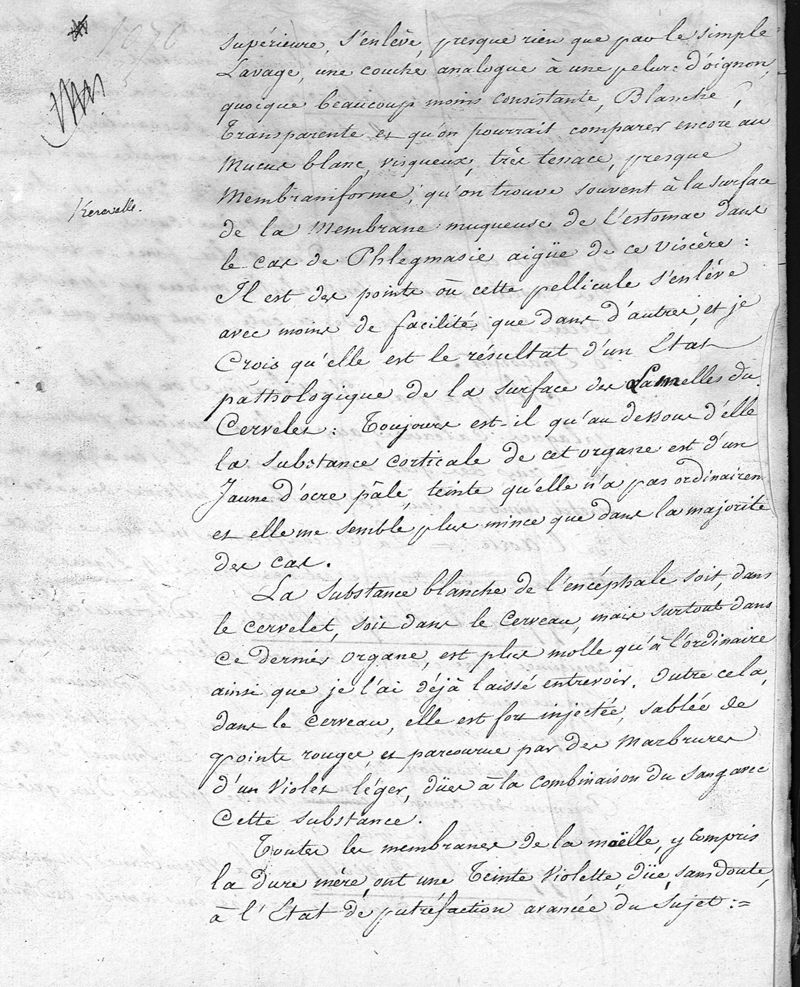 supérieure, s'enlève, presque rien que par le simple
Lavage, une couche analogue à une pelure d'oignon,
quoique beaucoup moins consistante, Blanche,
Transparente et qu'on pourrait comparer encore au
Mucus blanc, visqueux, très tenace, presque
Membraniforme, qu'on trouve souvent à la surface
de la Membrane muqueuse de l'estomac dans
le cas de Phlegmasie aigüe de ce viscère :
Il est des points où cette pellicule s'enlève
avec moins de facilité que dans d'autres, et je
Crois qu'elle est le résultat d'un Etat
pathologique de la surface des Lamelles du
Cervelet : Toujours est-il qu'au dessous d'elle
la substance corticale de cet organe est d'un
Jaune d'ocre pâle, teinte qu'elle n'a pas ordinairem
et elle me semble plus mince que dans la majorité
des cas.
La substance blanche de l'encéphale soit, dans
le cervelet, soit dans le Cerveau, mais surtout dans
Ce dernier organe, est plus molle qu'à l'ordinaire
ainsi que je l'ai déjà laissé entrevoir. Outre cela,
dans le Cerveau, elle est fort injectée, sablée de
points rouges, et parcourue par des Marbrures
d'un Violet léger, dües à la Combinaison du sang avec
Cette substance.
Toutes les membranes de la moëlle, y compris
la dure mère, ont une Teinte Violette, düe, sans doute,
à l'Etat de putréfaction avancée du Sujet : =